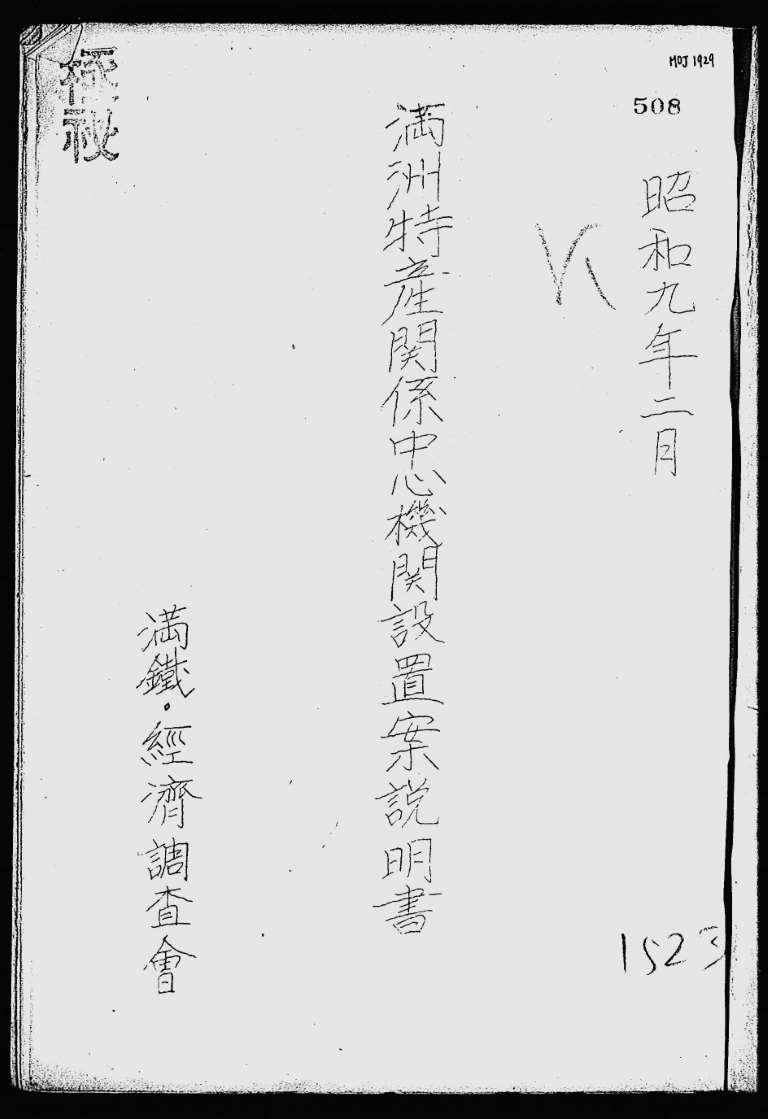 MOJ 1929
508
昭和九年二月
満洲特産関係中心機関設置案説明書
満鐵・經濟調査會
極秘
1523